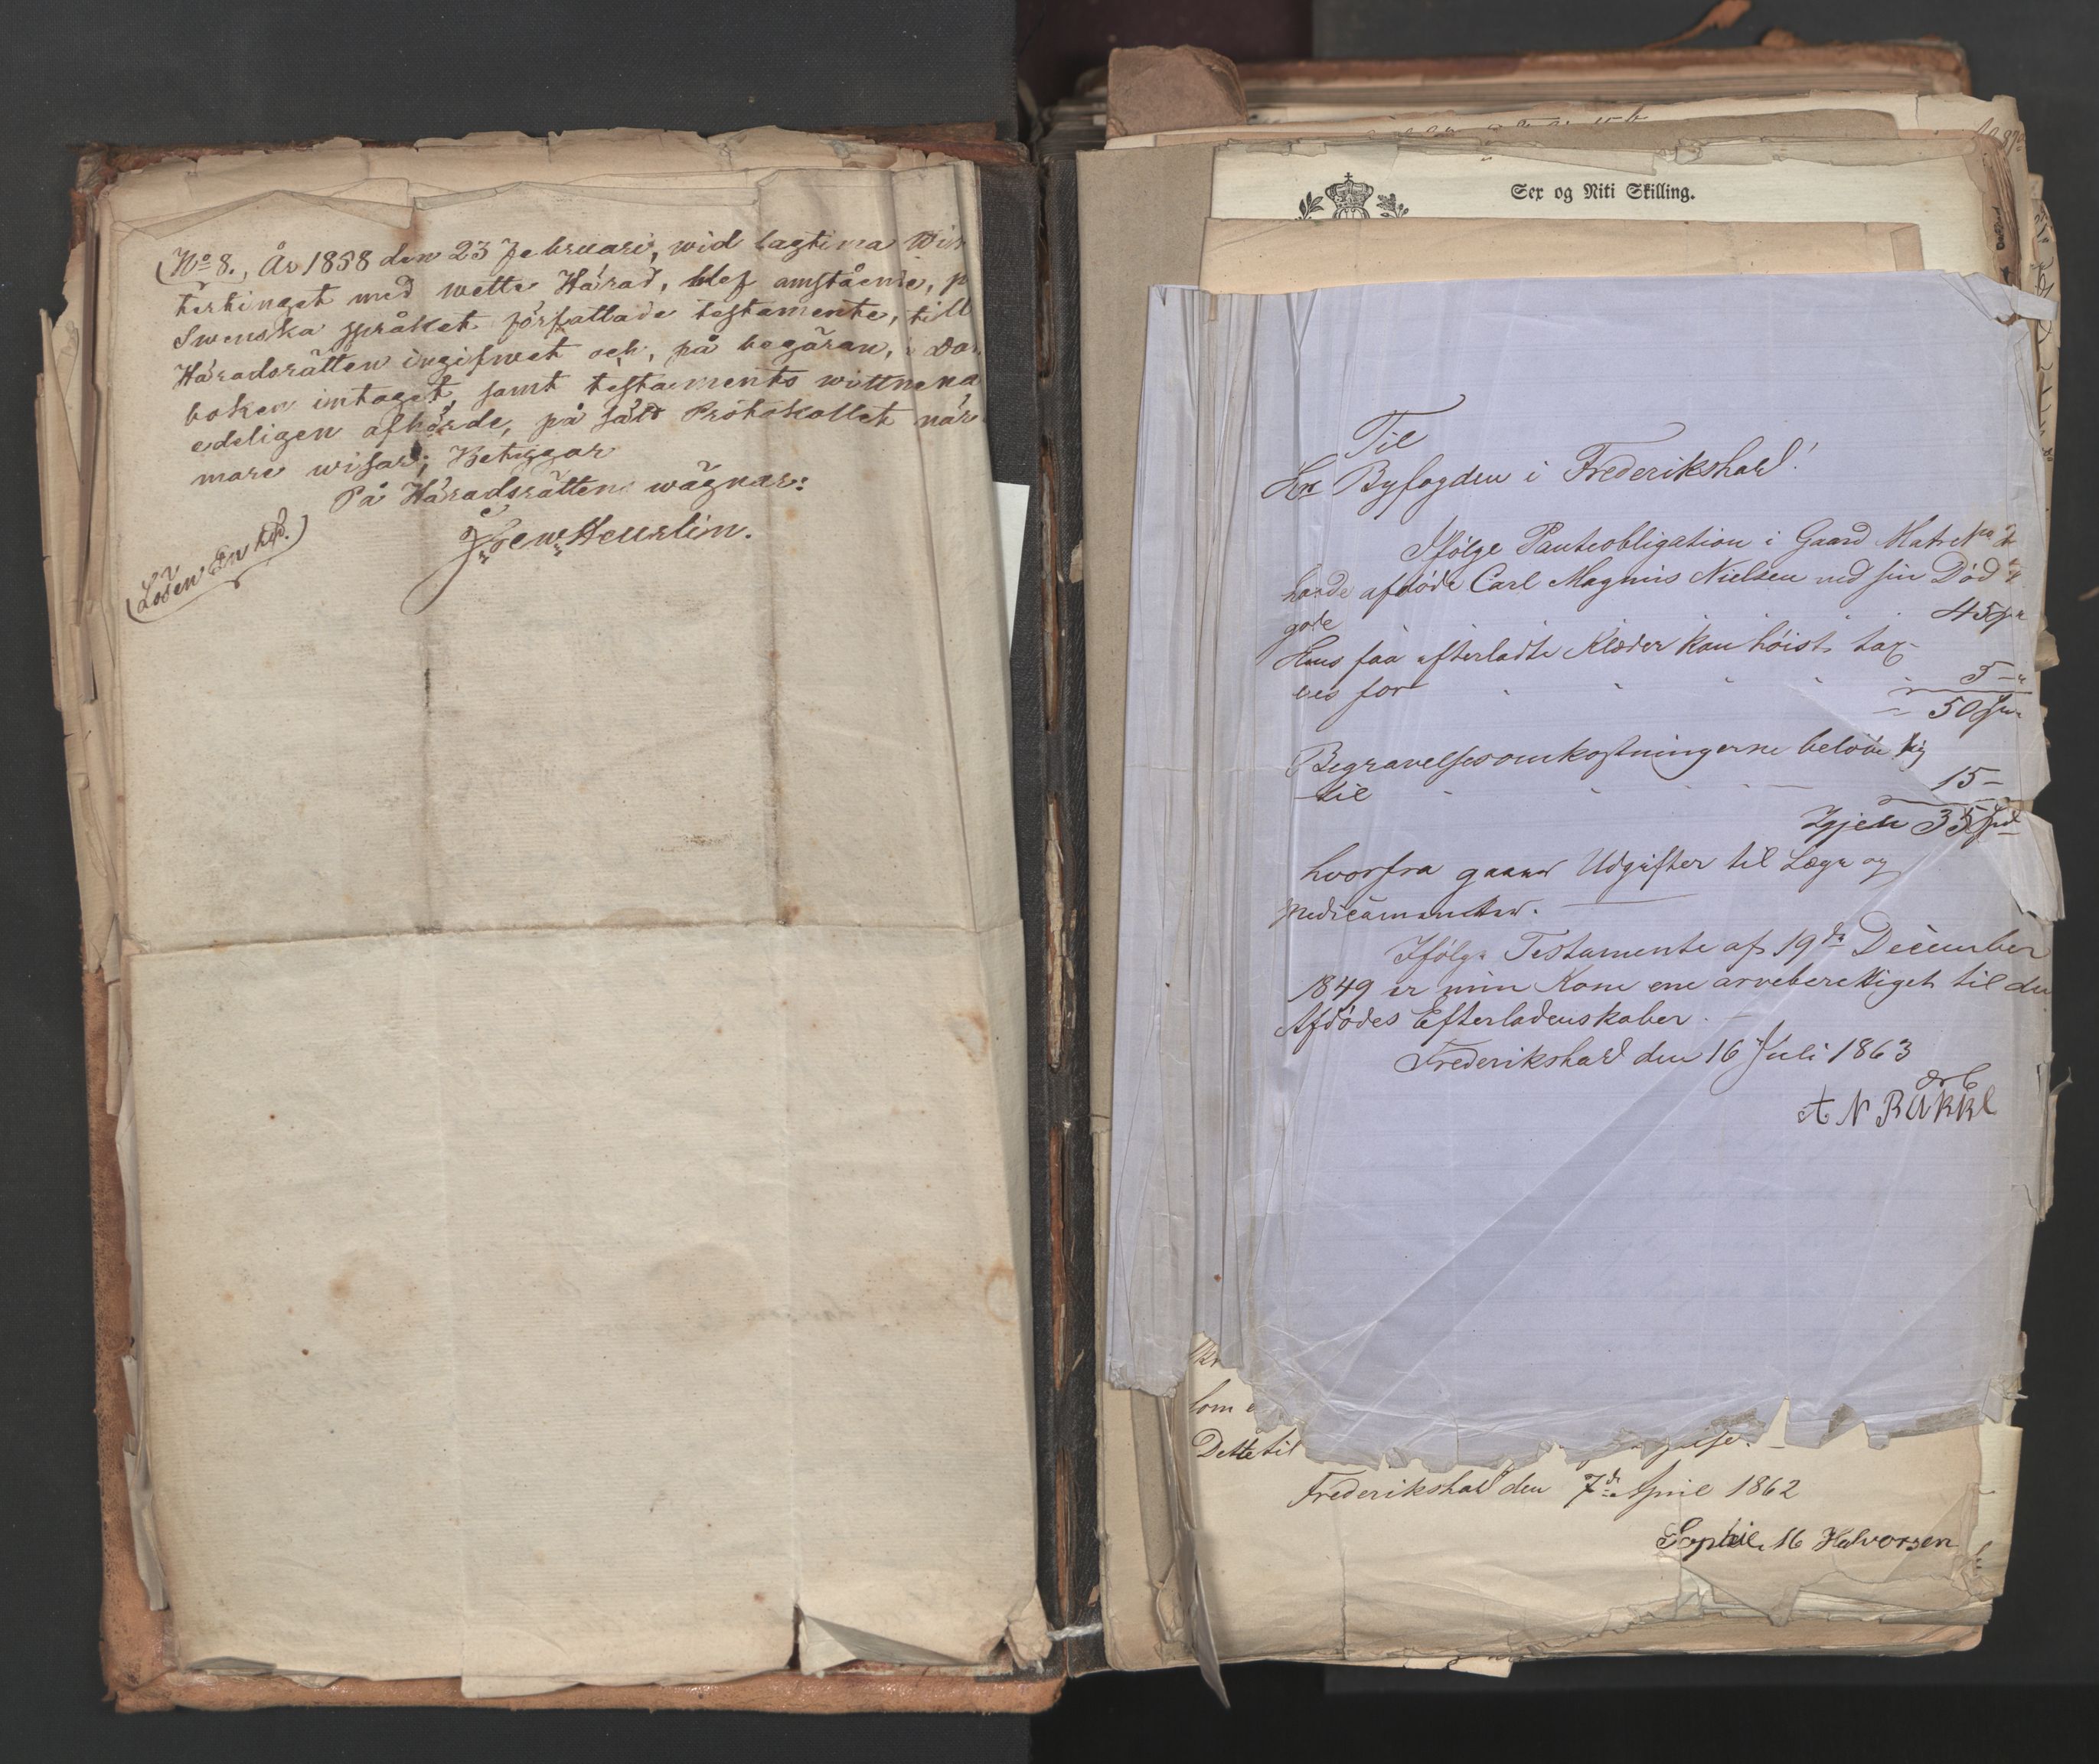 No 8., År 1858 den 23 Februari, wid lagtima Win
tertinget med wette Härad, blef omstående, p
Swenska språket författade testamente, till
Häradsrätten ingifwet och, på begäran, i Dom
boken intaget, samt testaments wittnena
edeligen afhörde, på sätt Protokollet när
mare wisar; Betygar
På Häradsrättens wägnar:
Heurlin.
Lösen En
Sex og Niti Skilling.
Til
Hr Byfogden i Frederikshald!
Ifølge Panteobligation i Gaard Matr No
havde afdøde Carl Magnus Nielsen ved sin Død
gode 45
Hans faa efterladte Klæder kan høist tax-
eres for 5 -
50
Begravelsesomkostningerne beløbe sig
til 15 -
Igjen 35
hvorfra gaaer Udgifter til Læge og
Medicamenter.
Ifølge Testamente af 19de December
1849 er min Kone ene arveberettiget til den
Afdødes Efterladenskaber.
Frederikshald den 16 Juli 1863
ærb
A N Bakke
som
Dette til
Frederikshald den 7de April 1862
Sophie M Halvorsen